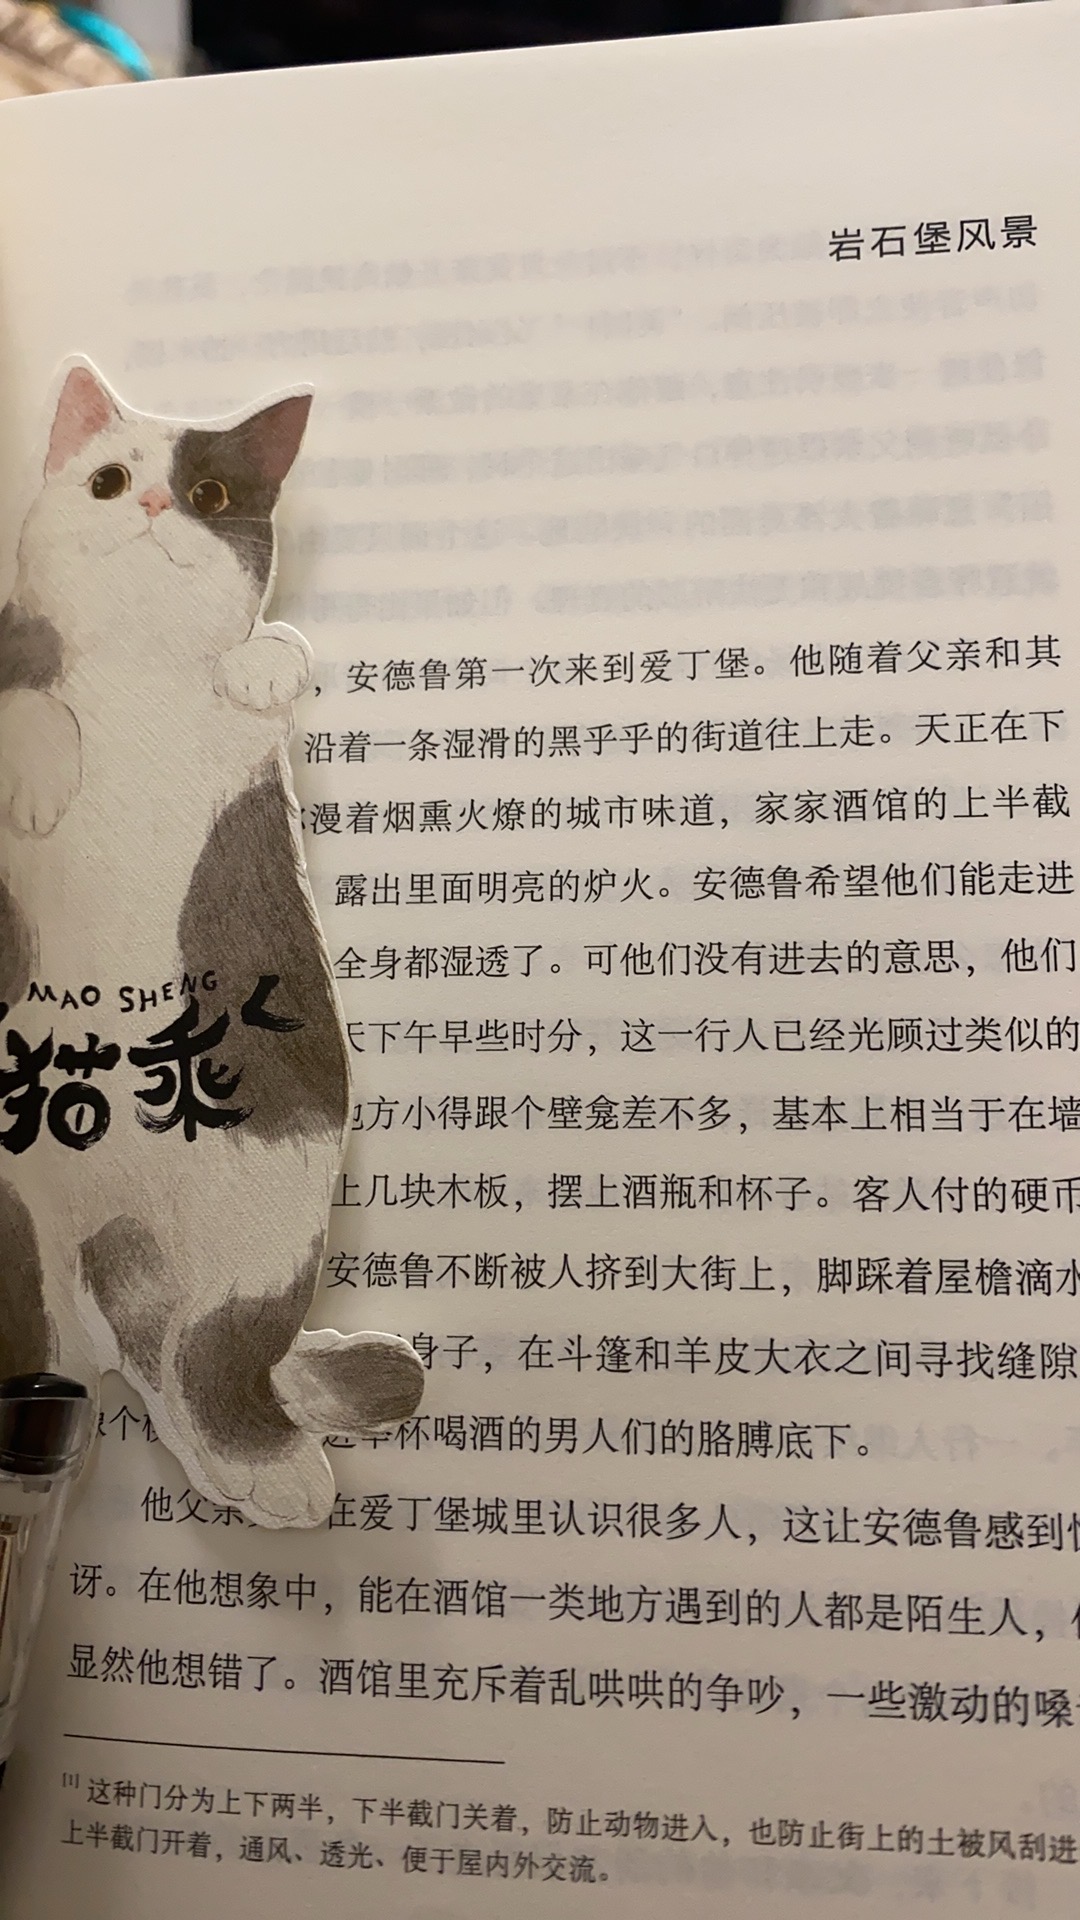 岩石堡风景
，安德鲁第一次来到爱丁堡。他随着父亲和其
沿着一条湿滑的黑乎乎的街道往上走。天正在下
漫着烟熏火燎的城市味道，家家酒馆的上半截
露出里面明亮的炉火。安德鲁希望他们能走进
全身都湿透了。可他们没有进去的意思，他们
天下午早些时分，这一行人已经光顾过类似的
地方小得跟个壁龛差不多，基本上相当于在墙
上几块木板，摆上酒瓶和杯子。客人付的硬币
安德鲁不断被人挤到大街上，脚踩着屋檐滴水
身子，在斗篷和羊皮大衣之间寻找缝隙
个
杯喝酒的男人们的胳膊底下。
他父亲
在爱丁堡城里认识很多人，这让安德鲁感到
讶。在他想象中，能在酒馆一类地方遇到的人都是陌生人，
显然他想错了。酒馆里充斥着乱哄哄的争吵，一些激动的嗓
[1] 这种门分为上下两半，下半截门关着，防止动物进入，也防止街上的土被风刮进
上半截门开着，通风、透光、便于屋内外交流。
MAO SHENG
猫乘